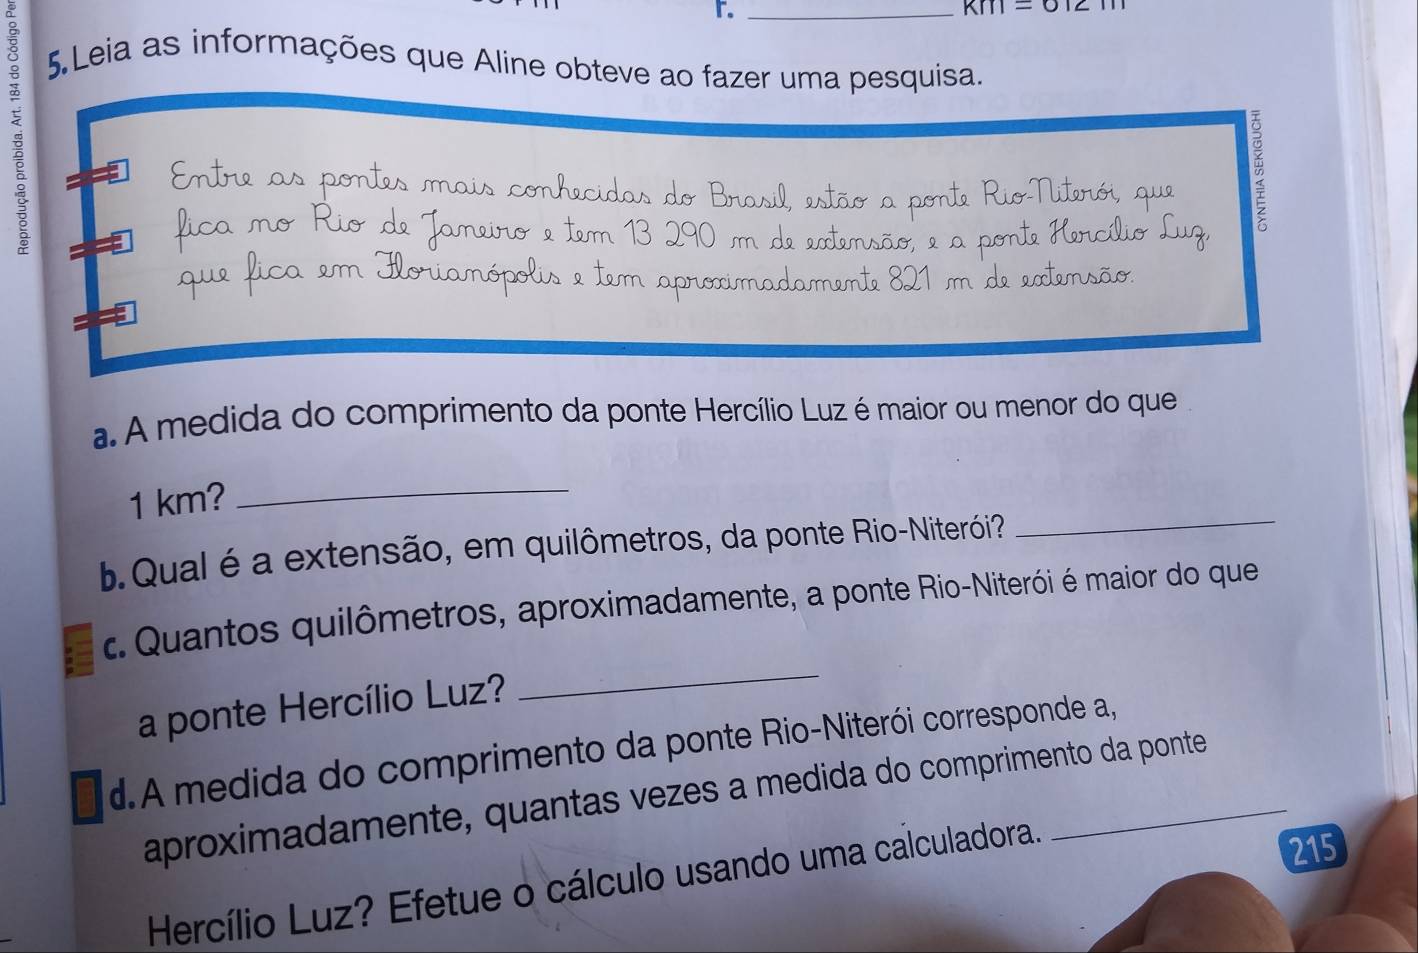 F. ____________ km = 612 m
5. Leia as informações que Aline obteve ao fazer uma pesquisa.
Entre as pontes mais conhecidas do Brasil, estão a ponte Rio-Niterói, que
fica no Rio de Janeiro e tem 13 290 m de extensão, e a ponte Hercílio Luz,
que fica em Florianópolis e tem aproximadamente 821 m de extensão.
CYNTHIA SEKIGUCHI
Reprodução proibida. Art. 184 do Código Pe
a. A medida do comprimento da ponte Hercílio Luz é maior ou menor do que
1 km? ____________
b. Qual é a extensão, em quilômetros, da ponte Rio-Niterói? ____________
c. Quantos quilômetros, aproximadamente, a ponte Rio-Niterói é maior do que
a ponte Hercílio Luz? ____________
d. A medida do comprimento da ponte Rio-Niterói corresponde a,
aproximadamente, quantas vezes a medida do comprimento da ponte
Hercílio Luz? Efetue o cálculo usando uma calculadora. ____________
215